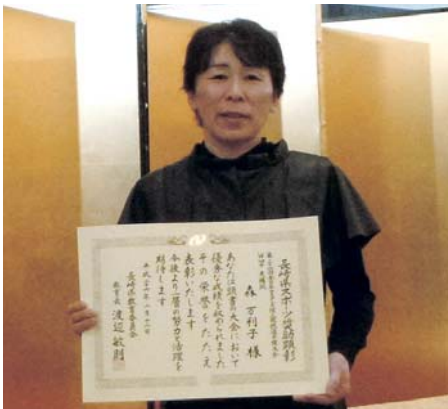 長崎県スポーツ奨励顕彰
森 万利子 様
あなたは頭書の大会において
優秀な成績を収められました
その栄誉をたたえ
表彰いたします
今後より一層の努力と活躍を
期待します
長崎県教育委員会
教育長 渡辺敏則